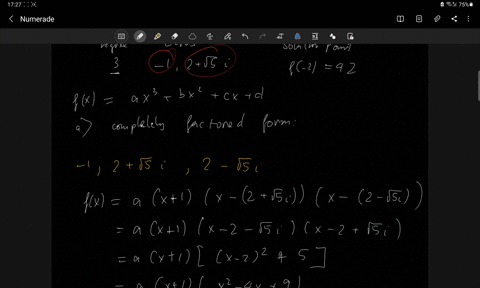 17:27 75%
Numerade
degree zeros solution point
3 -1, 2+√5 i f(-2) = 42
f(x) = ax³ + bx² + cx + d
a) completely factored form:
-1, 2+√5 i , 2-√5 i
f(x) = a (x+1) (x-(2+√5i)) (x-(2-√5i))
= a (x+1) (x-2-√5i) (x-2+√5i)
= a (x+1) [ (x-2)² + 5 ]
= a (x+1) [ x²-4x+9 ]